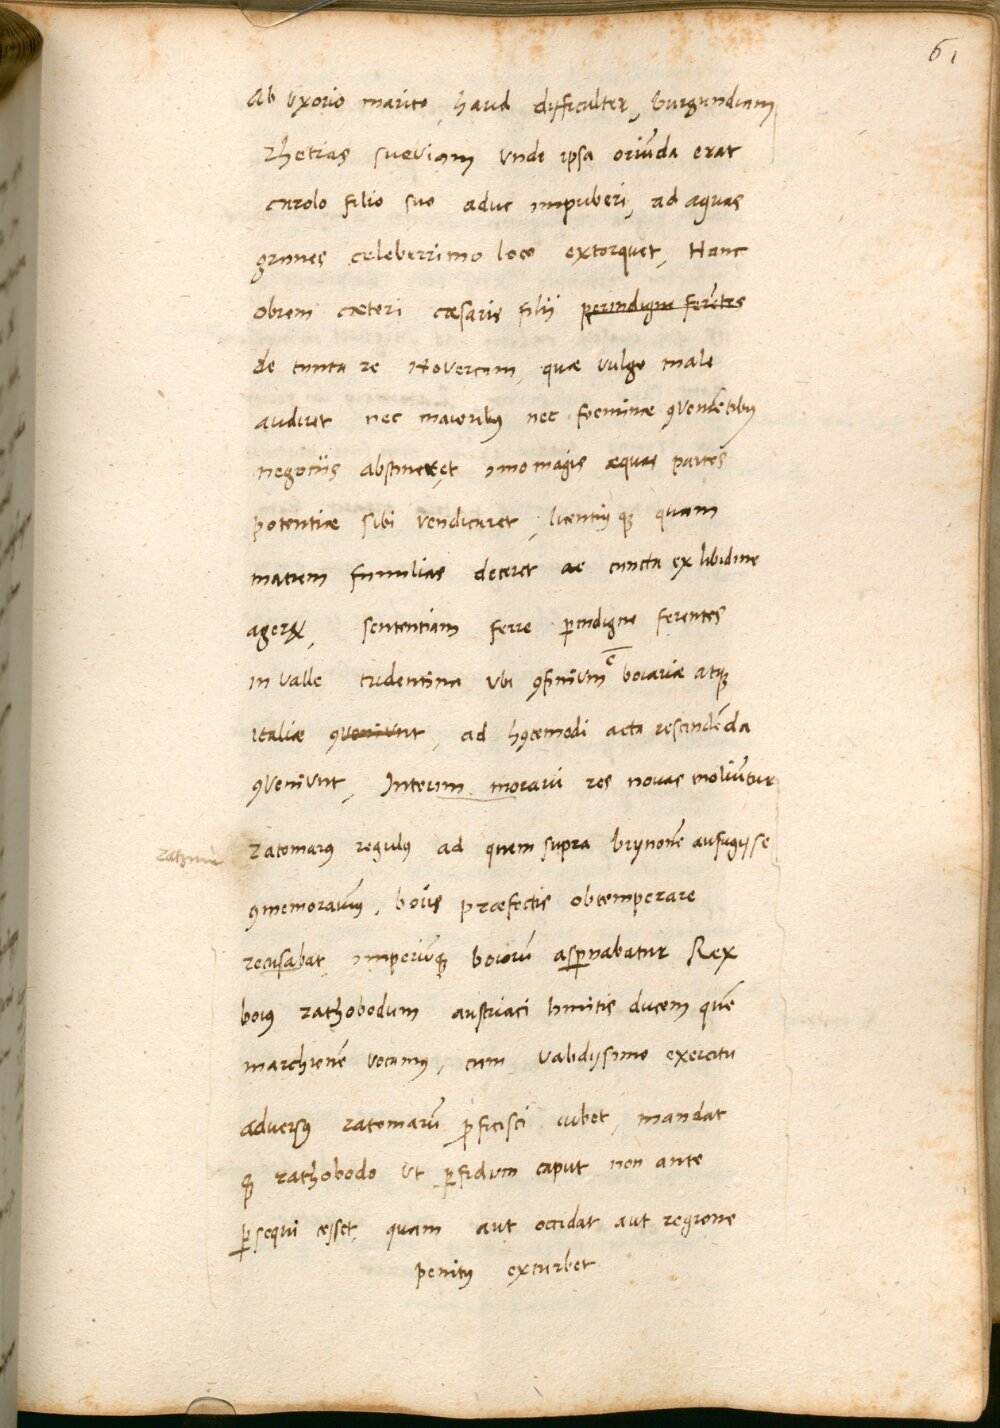 61
Ab vxorio marito, haud difficulter, burgundiam
rhetias sueviam vnde ipsa oriūda erat
carolo filio suo aduc impuberi, ad aquas
granes celeberrimo loco extorquet, Hanc
obrem cæteri cæsaris filij perindigne ferētes
de tanta re Novercam, quæ vulgo male
audiret nec maioribꝰ nec foeminæ ꝯvenīetibꝰ
negociis abstineret, imo magis æquas partes
potentiæ sibi vendicaret, licentiꝰ qꝫ quam
matrem familias deceret ac cuncta ex libidine
agere, sententiam ferre ꝑindigne ferentes
in valle tridentina vbi ꝯfinivm ē boiariæ atqꝫ
italiæ ꝯveniunt, ad hꝯcemodi acta rescindēda
ꝯveniunt, Interim moravi res novas moliūtur
ratomarꝰ regulꝰ ad quem supra brynonē aufugisse
ꝯmemoravimꝰ, boiis præfectis obtemperare
recusabat, imperiūqꝫ boiorū asꝑnabatur Rex
boiꝰ rathobodum austriaci limitis ducem quē
marchionē vocamꝰ, cum validissimo exercitu
adversꝰ ratomarū ꝓficisci iubet, mandat
qꝫ rathobodo vt ꝑfidum caput non ante
ꝑsequi cesset, quam aut occidat aut regione
penitꝰ exturbet